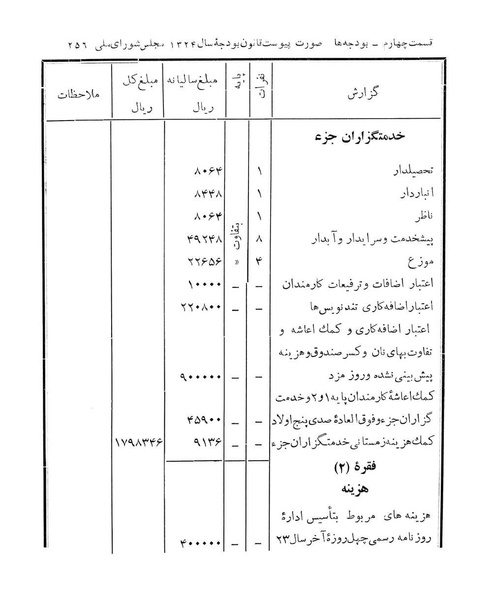 قسمت چهارم ـ بودجه‌ها صورت پیوست قانون بودجهٔ سال ۱۳۲۴ مجلس شورای ملی ۲۵۶
گزارش نفرات پایه مبلغ سالیانه ریال مبلغ کل ریال ملاحظات
خدمتگزاران جزء
تحصیلدار ۱ ۸۰۶۴
انباردار ۱ ۸۴۴۸
ناظر ۱ ۸۰۶۴
پیشخدمت و سرایدار و آبدار ۸ بتفاوت ۴۹۲۴۸
موزع ۴ » ۲۲۶۵۶
اعتبار اضافات و ترفیعات کارمندان – – ۱۰۰۰۰
اعتبار اضافه کاری تندنویس‌ها – – ۲۲۰۸۰۰
اعتبار اضافه کاری و کمک اعاشه و
تفاوت بهای نان و کسر صندوق و هزینه
پیش بینی نشده و روز مزد – – ۹۰۰۰۰۰
کمک اعاشهٔ کارمندان پایه ۱ و ۲ و خدمت
گزاران جزء و فوق العادهٔ صدی پنج اولاد – – ۴۵۹۰۰
کمک هزینه زمستانی خدمتگزاران جزء – – ۹۱۳۶ ۱۷۹۸۳۴۶
فقرهٔ (۲)
هزینه
هزینه های مربوط بتأسیس ادارهٔ
روزنامه رسمی چهل روزهٔ آخر سال ۲۳ – – ۴۰۰۰۰۰